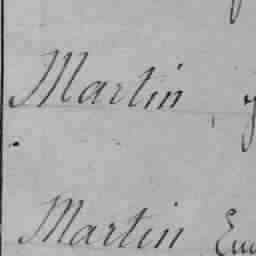 Martin,
Martin